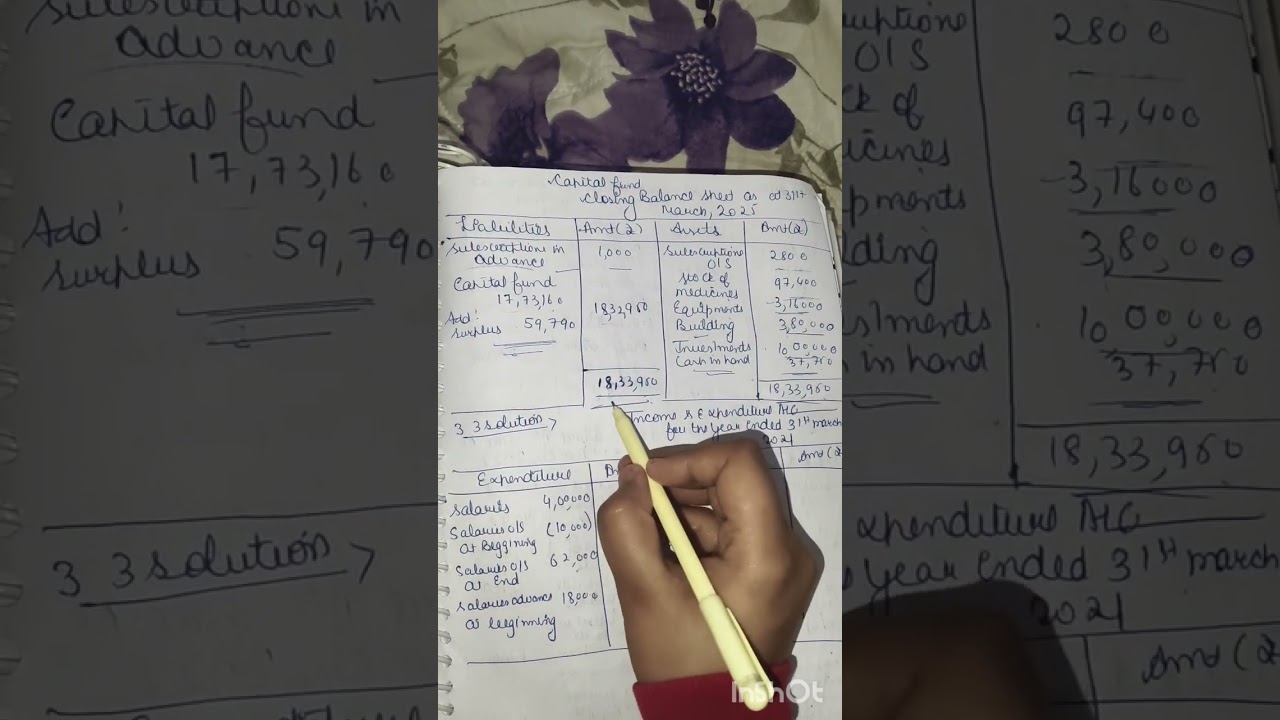 Capital fund
Closing Balance sheet as at 31st
March, 2025
Liabilities Amt(₹) Assets Amt(₹)
Subscriptions in 1,000 Subscriptions 2800
Advance O/S
Capital fund Stock of 97,400
17,73,160 medicines
1832,950 Equipments 3,16000
Add: Building 3,80,000
surplus 59,790
Investments 10 00,000
Cash in hand 37,750
18,33,950 18,33,950
3 3 solution → Income & Expenditure A/C
for the year ended 31st march
2021
Expenditure Amt(₹
Salaries 4,00,000
Salaries o/s (10,000)
at Beggining
Salaries o/s 62,000
at End
Salaries advance 18,000
at beginning
InShOt